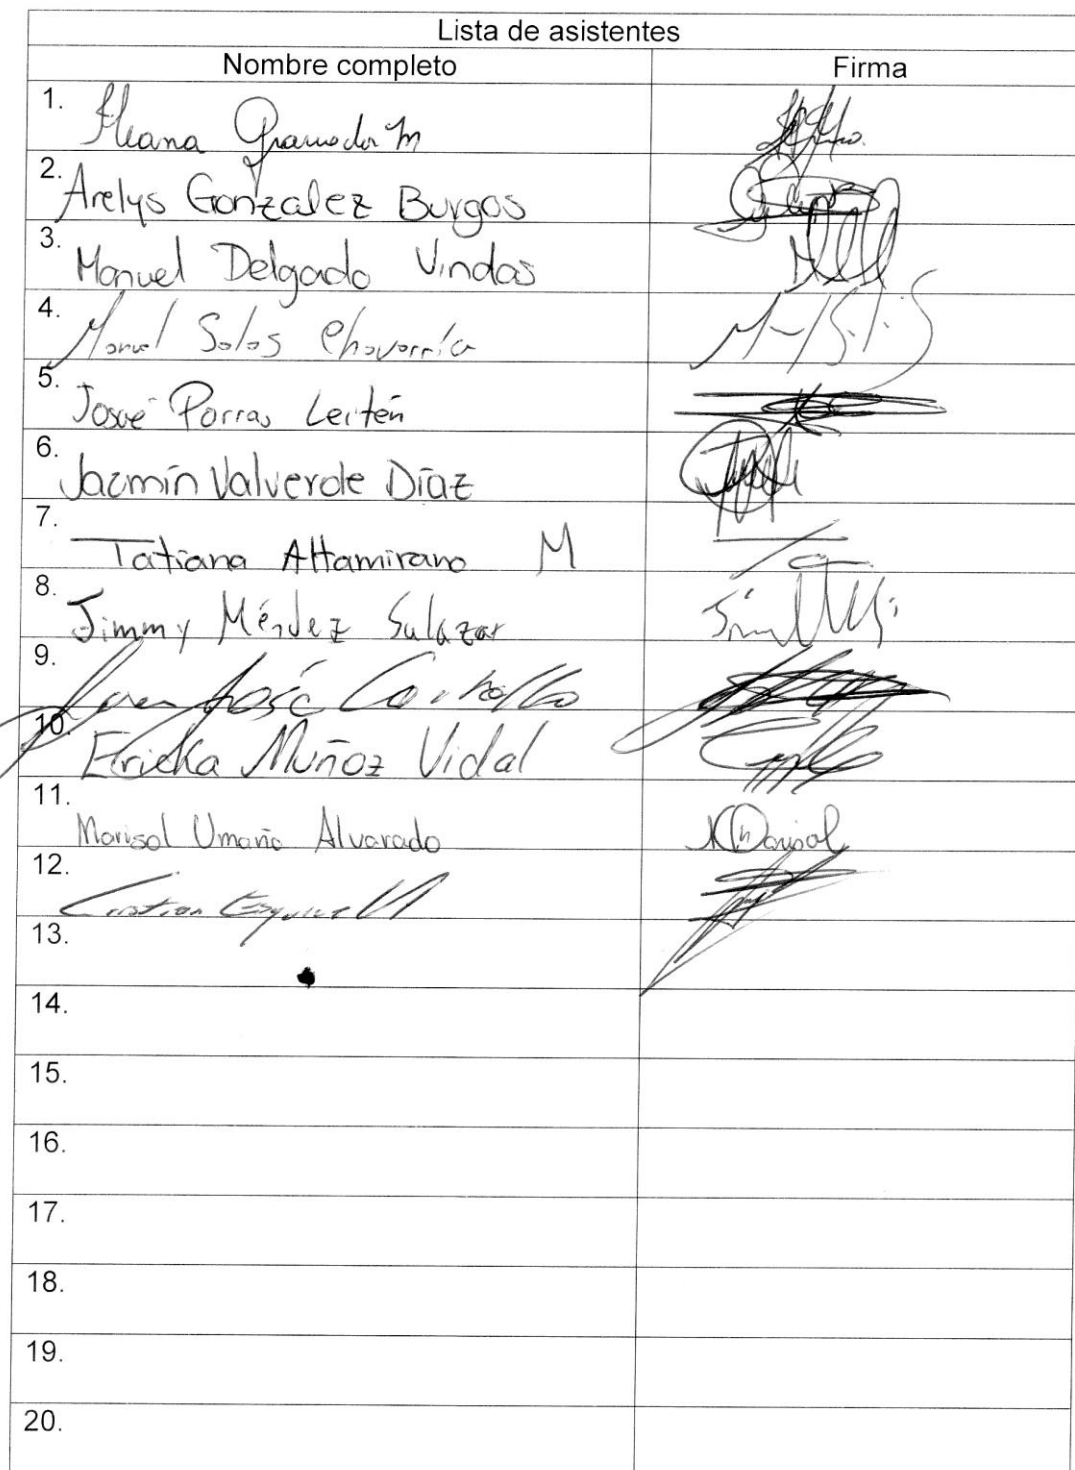 Lista de asistentes
Nombre completo Firma
1. Ileana Granados M
2. Arelys González Burgos
3. Manuel Delgado Vindas
4. Manuel Solos Chavarría
5. Josué Porras Leitén
6. Jazmín Valverde Díaz
7. Tatiana Altamirano M
8. Jimmy Méndez Salazar
9. José
10. Ericka Muñoz Vidal
11. Marisol Umaña Alvarado Marisol
12. Cristian Esquivel
13.
14.
15.
16.
17.
18.
19.
20.